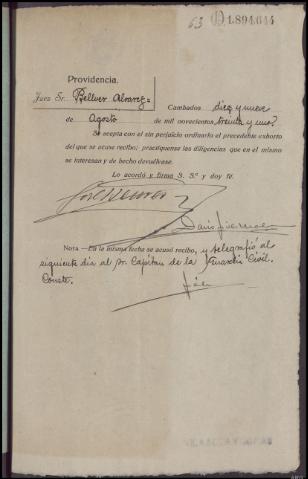 63 1.894.644
Providencia.
Juez Sr. Bellver Alvarez= Cambados diez y nueve
de Agosto de mil novecientos treinta y uno.
Se acepta con el sin perjuicio ordinario el precedente exhorto
del que se acuse recibo; practíquense las diligencias que en el mismo
se interesan y de hecho devuélvase.
Lo acordó y firma S. Sª y doy fé.
Nota —En la misma fecha se acusó recibo, y telegrafió al
siguiente dia al Sr. Capitan de la Guardia Civil.
Conste.